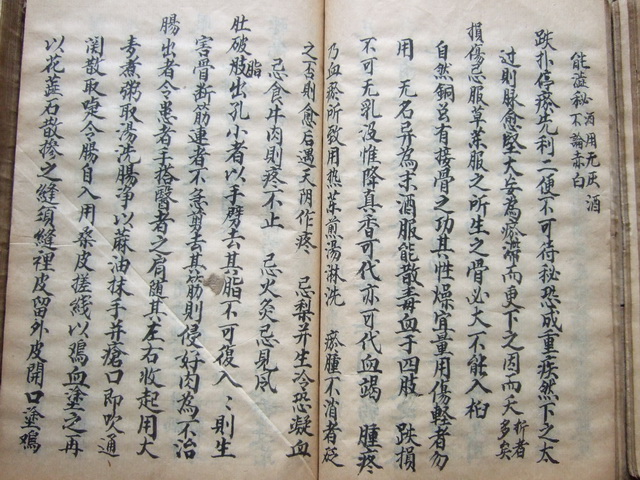 能溢秘 酒用无灰酒
不論赤白
跌扑停瘀先利二便不可待秘恐成重疾然下之太
过則脉愈堅大妄為瘀滯而更下之因而夭折者多矣
損傷忌服草薬服之所生之骨必大不能入柏
自然銅虽有接骨之功其性燥宜量用傷輕者勿
用 无名异為末酒服能散毒血于四肢 跌損
不可无乳没惟降真香可代亦可代血竭 腫疼
乃血瘀所致用热茶煎湯淋洗 瘀腫不消者砭
之否則愈后遇天阴作疼 忌梨并生冷恐凝血
忌食牛肉則疼不止 忌火灸忌見风
肚破脂出孔小者以手劈去其脂不可復入〻則生
害骨断筋連者不急剪去其筋則侵好肉為不治
腸出者令患者手搭醫者之肩随其左右收起用大
麦煮粥取湯洗腸争以蔴油抹手并瘡口即吹通
関散取嚏令腸自入用桑皮搓綫以鸡血塗之再
以花蕊石散掺之缝須縫裡皮留外皮開口塗鸡